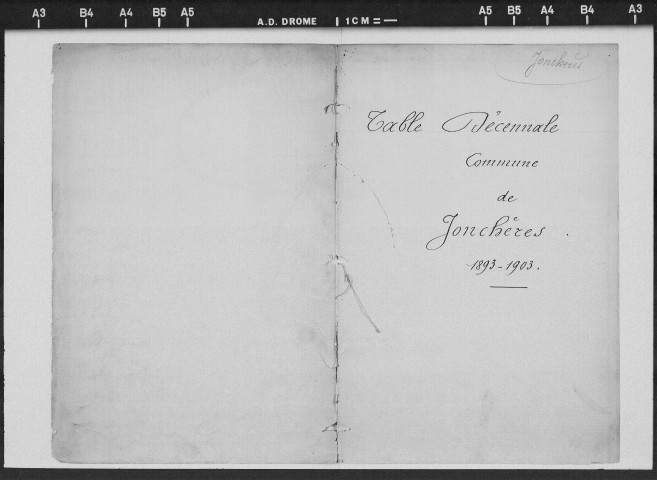 A3 B4 A4 B5 A5 A.D. DROME 1 CM A5 B5 A4 B4 A3
Jonchères
Table Décennale
Commune
de
Jonchères.
1893-1903.